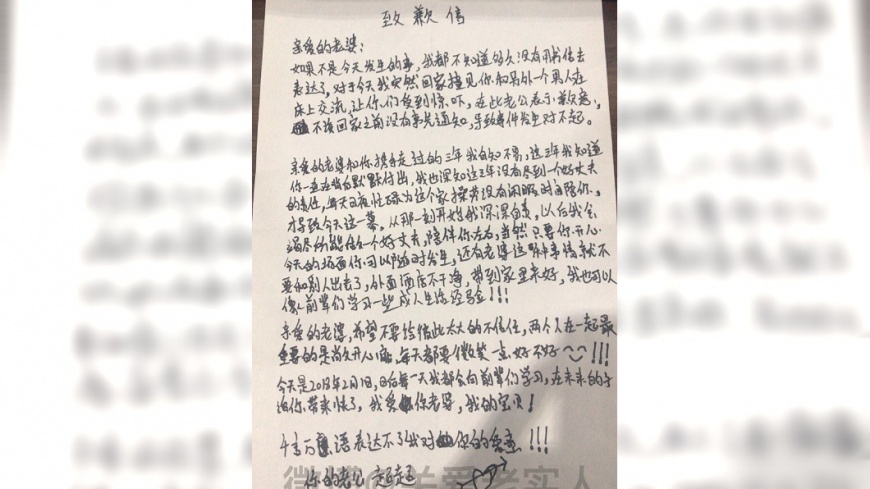 致歉信
亲爱的老婆：
如果不是今天发生的事，我都不知道多久没有用书信去
表达了，对于今天我突然回家撞见你和另外一个男人在
床上交流，让你们受到惊吓，在此老公表示歉意，
不该回家之前没有事先通知，导致事件发生对不起。
亲爱的老婆和你携手走过的三年我自知不易，这三年我知道
你一直在背后默默付出，我也深知这三年没有尽到一个好丈夫
的责任，每天日夜忙碌为这个家操劳没有闲暇时间陪你，
才导致今天这一幕。从那一刻开始我深深自责，以后我会
竭尽所能做一个好丈夫，陪伴你左右，当然只要你开心
今天的场面你可以随时发生，还有老婆这种事情就不
要和别人出去了，外面酒店不干净，带到家里来好，我也可以
像前辈们学习一些成人生活经验！！！
亲爱的老婆，希望不要给彼此太大的不信任，两个人在一起最
重要的是开心，每天都要微笑一点好不好！！！
今天是2018年2月1日，日后每一天我都会向前辈们学习，在未来的
给你带来快了，我爱你老婆，我的宝贝！
千言万语表达不了我对你的！！！
你的老公
微博@关爱老实人